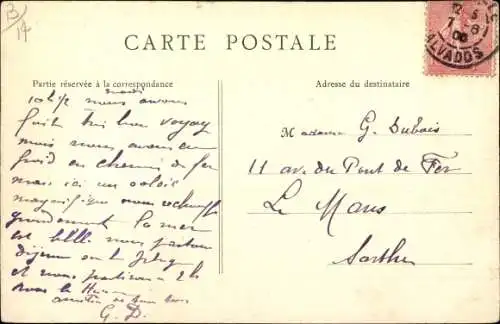 B
14
CARTE POSTALE
Partie réservée à la correspondance
Adresse du destinataire
mardi
10h ½ nous avons
fait très bon voyage
mais nous avons eu
froid en chemin de fer
mais ici un soleil
magnifique nous réchauffe
grandement la mer
est belle nous
déjeuner sur la
et nous partirons à 2h
pour le
amitiés de
G. D.
Madame G. Dubois
11 av. du Pont de Fer
Le Mans
Sarthe
12 5
7 - 8
06
ALVADOS